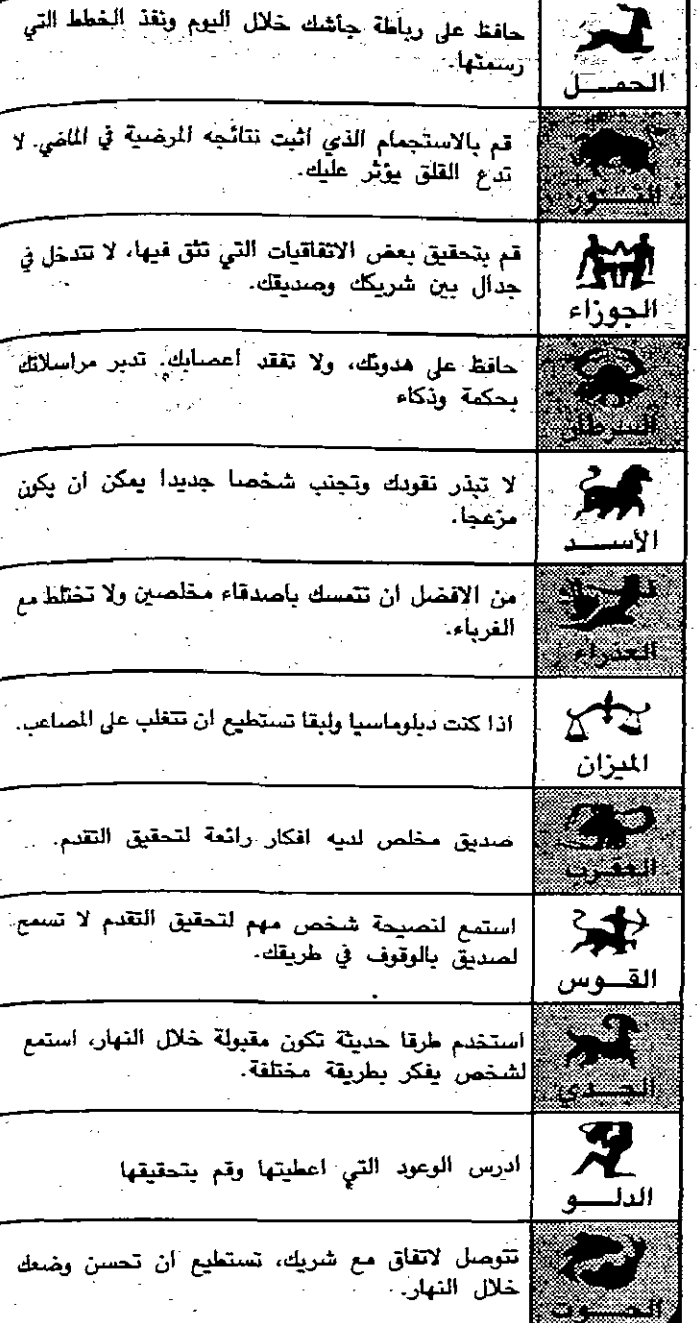 حافظ على رباطة جأشك خلال اليوم ونفذ الخطط التي
رسمتها.
الحمــل
قم بالاستجمام الذي اثبت نتائجه المرضية في الماضي. لا
تدع القلق يؤثر عليك.
الثــور
قم بتحقيق بعض الاتفاقيات التي تثق فيها، لا تتدخل في
جدال بين شريكك وصديقك.
الجوزاء
حافظ على هدوئك، ولا تفقد أعصابك. تدبر مراسلاتك
بحكمة وذكاء
السرطان
لا تبذر نقودك وتجنب شخصا جديدا يمكن ان يكون
مزعجا.
الأســـد
من الافضل ان تتمسك باصدقاء مخلصين ولا تختلط مع
الغرباء.
العذراء
اذا كنت دبلوماسيا ولبقا تستطيع ان تتغلب على المصاعب.
الميزان
صديق مخلص لديه افكار رائعة لتحقيق التقدم.
العقرب
استمع لنصيحة شخص مهم لتحقيق التقدم لا تسمح
لصديق بالوقوف في طريقك.
القــوس
استخدم طرقا حديثة تكون مقبولة خلال النهار، استمع
لشخص يفكر بطريقة مختلفة.
الجــدي
ادرس الوعود التي اعطيتها وقم بتحقيقها
الدلــو
تتوصل لاتفاق مع شريك، تستطيع ان تحسن وضعك
خلال النهار.
الحــوت